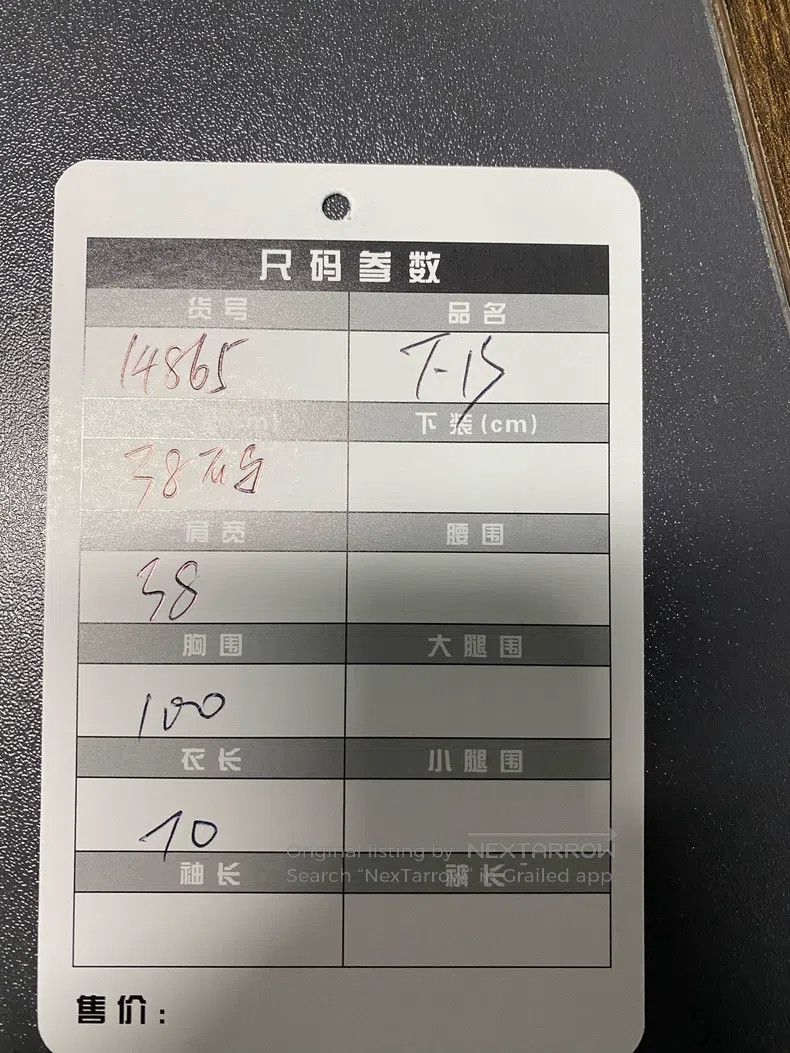 尺码参数
货号 品名
14865 T-1S
(cm) 下装(cm)
38
肩宽 腰围
38
胸围 大腿围
100
衣长 小腿围
70
袖长 裤长
Original listing by NEXTARROW
Search "NexTarrow" in Grailed app
售价: